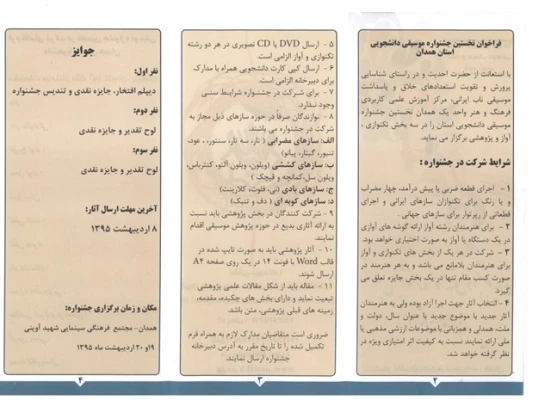 فراخوان نخستین جشنواره موسیقی دانشجویی
استان همدان
با استعانت از حضرت احدیت و در راستای شناسایی
پرورش و تقویت استعدادهای خلاق و پاسداشت
موسیقی ناب ایرانی، مرکز آموزش علمی کاربردی
فرهنگ و هنر واحد یک همدان نخستین جشنواره
موسیقی دانشجویی استان را در سه بخش تکنوازی ،
آواز و پژوهشی برگزار می نماید.
شرایط شرکت در جشنواره :
۱ - اجرای قطعه ضربی یا پیش درآمد، چهار مضراب
و یا رنگ برای تکنوازان سازهای ایرانی و اجرای
قطعاتی از رپرتوار برای سازهای جهانی .
۲ - برای هنرمندان رشته آواز ارائه گوشه های آوازی
در یک دستگاه یا آواز به صورت اختیاری خواهد بود.
۳ - شرکت در هر یک از بخش های تکنوازی و آواز
برای هنرمندان بلامانع می باشد و به هر هنرمند در
صورت کسب مقام تنها در یک بخش جایزه تعلق می
گیرد
۴ - انتخاب آثار جهت اجرا آزاد بوده ولی به هنرمندان
آثار جدید با موضوع جدید با عنوان سال، دولت و
ملت، همدلی و همزبانی با موضوعات ارزشی مذهبی یا
ملی ارائه نمایند نسبت به کیفیت اثر امتیازی ویژه در
نظر گرفته خواهد شد.
۲
۵ - ارسال DVD یا CD تصویری در هر دو رشته
تکنوازی و آواز الزامی است.
۶ - ارسال کپی کارت دانشجویی همراه با مدارک
برای دبیرخانه الزامی است.
۷ - برای شرکت در جشنواره شرایط سنی
وجود ندارد.
۸ - نوازندگان صرفاً در حوزه سازهای ذیل مجاز به
شرکت در جشنواره می باشند.
الف: سازهای مضرابی ( تار، سه تار، سنتور، ، عود،
تنبور، گیتار، پیانو)
ب: سازهای کششی (ویلون، ویلون آلتو، کنترباس،
ویلون سل،کمانچه و قیچک )
ج: سازهای بادی (نی، فلوت، کلارینت)
د: سازهای کوبه ای ( دف و تنبک)
۹ - شرکت کنندگان در بخش پژوهشی باید نسبت
به ارائه آثاری بدیع در حوزه پژوهش موسیقی اقدام
نمایند.
۱۰ - آثار پژوهشی باید به صورت تایپ شده در
قالب Word با فونت ۱۴ در یک روی صفحه A۴
ارسال شوند.
۱۱ - مقاله باید از شکل مقالات علمی پژوهشی
تبعیت نماید و دارای بخش های چکیده، مقدمه،
زمینه های قبلی پژوهشی، متن باشد.
ضروری است متقاضیان مدارک لازم به همراه فرم
تکمیل شده را تا تاریخ مقرر به آدرس دبیرخانه
جشنواره ارسال نمایند.
۳
جوایز
نفر اول:
دیپلم افتخار، جایزه نقدی و تندیس جشنواره
نفر دوم:
لوح تقدیر و جایزه نقدی
نفر سوم:
لوح تقدیر و جایزه نقدی
آخرین مهلت ارسال آثار:
۸ اردیبهشت ۱۳۹۵
مکان و زمان برگزاری جشنواره:
همدان- مجتمع فرهنگی سینمایی شهید آوینی
۱۹و ۲۰ اردیبهشت ماه ۱۳۹۵
۴